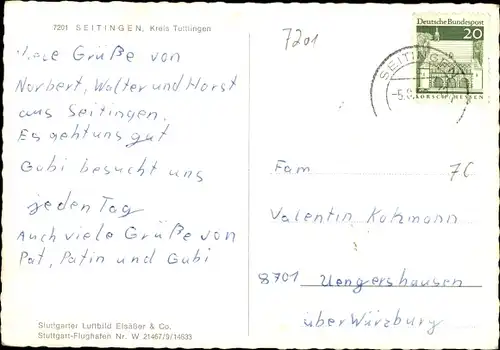 7201 SEITINGEN, Kreis Tuttlingen
Viele Grüße von
Norbert, Walter und Horst
aus Seitingen.
Es geht uns gut
Gabi besucht uns
jeden Tag
Auch viele Grüße von
Pat, Patin und Gabi
Stuttgarter Luftbild Elsäßer & Co.
Stuttgart-Flughafen Nr. W 21467/9/14633
7201
Deutsche Bundespost
20
LORSCH/HESSEN
SEITINGEN
-5.
70
Fam
Valentin Kotzmann
8701 Uengershausen
über Würzburg